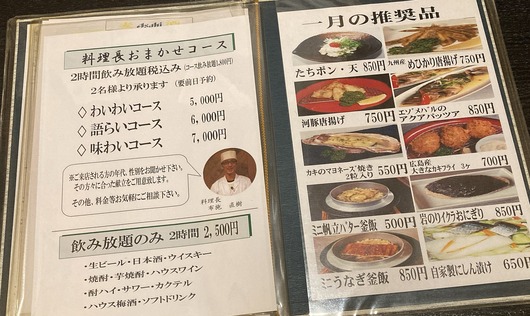 料理長おまかせコース
2時間飲み放題税込み(コース飲み放題1,800円)
2名様より承ります (要前日予約)
◇ わいわいコース 5,000円
◇ 語らいコース 6,000円
◇ 味わいコース 7,000円
※ご来店される方の年代、性別をお聞かせ下さい。
その方々に合った献立をご用意致します。
その他、料金等お気軽にご相談下さい。
料理長
布施 直樹
飲み放題のみ 2時間 2,500円
・生ビール・日本酒・ウイスキー
・焼酎・芋焼酎・ハウスワイン
・酎ハイ・サワー・カクテル
・ハウス梅酒・ソフトドリンク
一月の推奨品
たちポン・天 850円
九州産 めひかり唐揚げ 750円
河豚唐揚げ 750円
エゾメバルの
アクアパッツァ 850円
カキのマヨネーズ焼き
2粒入り 550円
広島産
大きなカキフライ 3ケ 700円
ミニ帆立バター釜飯 500円
岩のりイクラおにぎり 850円
ミニうなぎ釜飯 850円
自家製にしん漬け 650円